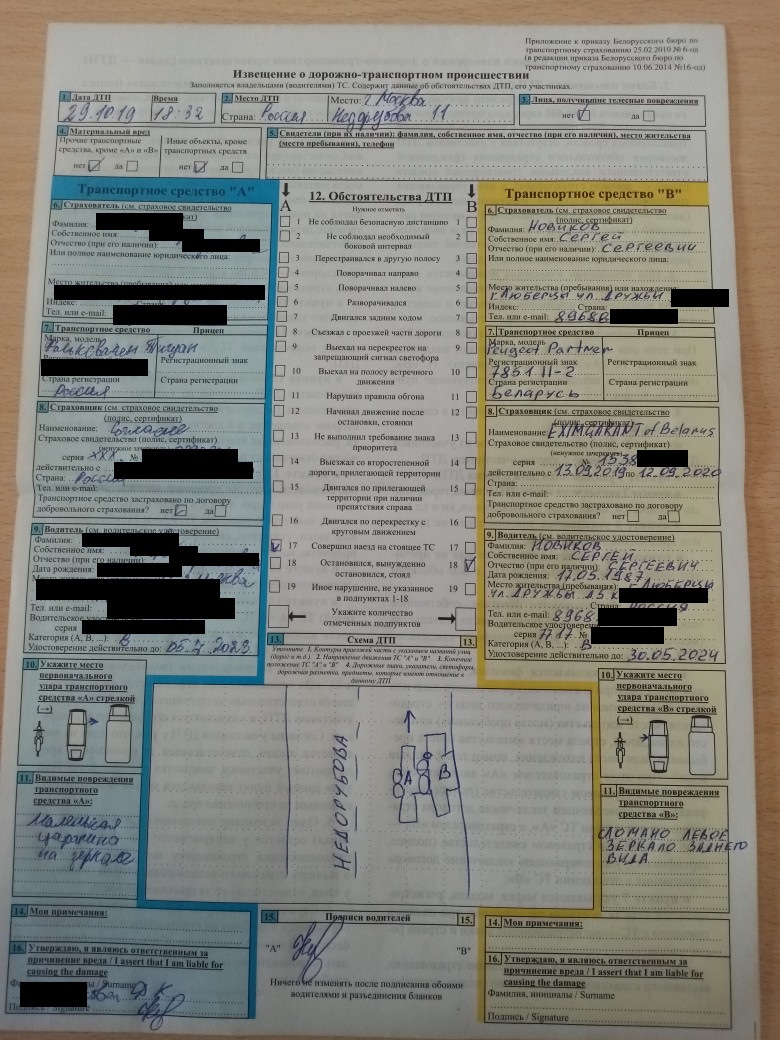 Приложение к приказу Белорусского бюро по
транспортному страхованию 25.02.2010 № 6-од
(в редакции приказа Белорусского бюро по
транспортному страхованию 10.06.2014 №16-од)
Извещение о дорожно-транспортном происшествии
Заполняется владельцами (водителями) ТС. Содержит данные об обстоятельствах ДТП, его участниках
1. Дата ДТП Время
29.10.19 18:32
2. Место ДТП Место: г. Москва
Страна: Россия Недорубова 11
3. Лица, получившие телесные повреждения
нет да
4. Материальный вред
Прочие транспортные средства, кроме «А» и «В»
нет да
Иные объекты, кроме транспортных средств
нет да
5. Свидетели (при их наличии): фамилия, собственное имя, отчество (при его наличии), место жительства
(место пребывания), телефон
Транспортное средство "А"
6. Страхователь (см. страховое свидетельство
Фамилия:
Собственное имя:
Отчество (при его наличии):
Или полное наименование юридического лица:
Место жительства
Индекс: Страна
Тел. или e-mail:
7. Транспортное средство Прицеп
Марка, модель
Фольксваген Тигуан
Регистрационный знак
Страна регистрации Страна регистрации
Россия
8. Страховщик (см. страховое свидетельство
(полис, сертификат)
Наименование:
Страховое свидетельство (полис, сертификат)
(ненужное зачеркнуть)
серия XXX №
действительно с
Страна: Россия
Тел. или e-mail:
Транспортное средство застраховано по договору
добровольного страхования? нет да
9. Водитель (см. водительское удостоверение)
Фамилия:
Собственное имя:
Отчество (при его наличии)
Дата рождения:
Тел. или e-mail:
Водительское
серия
Категория (А, В, ...): B
Удостоверение действительно до:
10. Укажите место
первоначального
удара транспортного
средства «А» стрелкой
(→)
11. Видимые повреждения
транспортного
средства «А»:
Маленькая
царапина
на зеркале
14. Мои примечания:
16. Утверждаю, я являюсь ответственным за
причинение вреда / I assert that I am liable for
causing the damage
/ Surname
Подпись / Signature
12. Обстоятельства ДТП
А Нужное отметить В
1 Не соблюдал безопасную дистанцию 1
2 Не соблюдал необходимый боковой интервал 2
3 Перестраивался в другую полосу 3
4 Поворачивал направо 4
5 Поворачивал налево 5
6 Разворачивался 6
7 Двигался задним ходом 7
8 Съезжал с проезжей части дороги 8
9 Выехал на перекресток на запрещающий сигнал светофора 9
10 Выехал на полосу встречного движения 10
11 Нарушил правила обгона 11
12 Начинал движение после остановки, стоянки 12
13 Не выполнил требования знака приоритета 13
14 Выезжал со второстепенной дороги, прилегающей территории 14
15 Двигался по прилегающей территории при наличии препятствия справа 15
16 Двигался по перекрестку с круговым движением 16
17 Совершил наезд на стоящее ТС 17
18 Остановился, вынужденно остановился, стоял 18
19 Иное нарушение, не указанное в подпунктах 1-18 19
Укажите количество отмеченных подпунктов
13. Схема ДТП 13.
Уточните: 1. Контуры проезжей части с указанием названий улиц
(дорог и т.д.). 2. Направление движения ТС "А" и "В" 3. Конечное
положение ТС "А" и "В" 4. Дорожные знаки, указатели, светофоры,
дорожная разметка, предметы, которые имеют отношение к
данному ДТП
НЕДОРУБОВА
А
В
15. Подписи водителей 15.
"А" "В"
Ничего не изменять после подписания обоими
водителями и разъединения бланков
Транспортное средство "В"
6. Страхователь (см. страховое свидетельство
(полис, сертификат)
Фамилия: НОВИКОВ
Собственное имя: СЕРГЕЙ
Отчество (при его наличии): СЕРГЕЕВИЧ
Или полное наименование юридического лица:
Место жительства (пребывания) или нахождения:
г.ЛЮБЕРЦЫ ул. ДРУЖБЫ
Индекс: Страна:
Тел. или e-mail: 8968
7. Транспортное средство Прицеп
Марка, модель
Peugeot Partner
Регистрационный знак Регистрационный знак
7851 II-2
Страна регистрации Страна регистрации
Беларусь
8. Страховщик (см. страховое свидетельство
(полис, сертификат)
Наименование: EXIMGARANT of Belarus
Страховое свидетельство (полис, сертификат)
(ненужное зачеркнуть)
серия № 1538
действительно с 13.09.2019 по 12.09.2020
Страна:
Тел. или e-mail:
Транспортное средство застраховано по договору
добровольного страхования? нет да
9. Водитель (см. водительское удостоверение)
Фамилия: НОВИКОВ
Собственное имя: СЕРГЕЙ
Отчество (при его наличии): СЕРГЕЕВИЧ
Дата рождения: 17.05.1987
Место жительства (пребывания) г.ЛЮБЕРЦЫ
ул. ДРУЖБЫ
Страна РОССИЯ
Тел. или e-mail: 8968
Водительское удостоверение
серия 7717 №
Категория (А, В, ...): B
Удостоверение действительно до: 30.05.2024
10. Укажите место
первоначального
удара транспортного
средства «В» стрелкой
(→)
11. Видимые повреждения
транспортного
средства «В»:
СЛОМАНО ЛЕВОЕ
ЗЕРКАЛО ЗАДНЕГО
ВИДА
14. Мои примечания:
16. Утверждаю, я являюсь ответственным за
причинение вреда / I assert that I am liable for
causing the damage
Фамилия, инициалы / Surname
Подпись / Signature